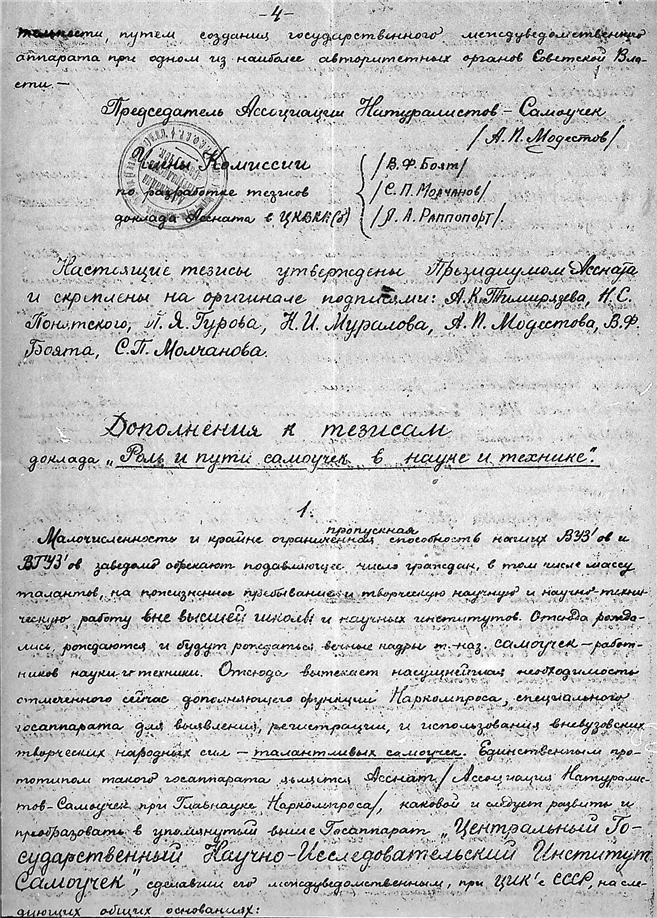 -4-
тельности, путем создания государственного междуведомственного
аппарата при одном из наиболее авторитетных органов Советской Вла-
сти.-
Председатель Ассоциации Натуралистов - Самоучек
/А. П. Модестов/
Члены Комиссии
/В. Ф. Боят/
по разработке тезисов
/С. П. Молчанов/
доклада Ассната в ЦКВКП(б)
/Я. А. Раппопорт/.
Настоящие тезисы утверждены Президиумом Ассната
и скреплены на оригинале подписями: А. К. Тимирязева, И. С.
Понятского, П. Я. Гурова, Н. И. Муралова, А. П. Модестова, В. Ф.
Боята, С. П. Молчанова.
Дополнения к тезисам
доклада „Роль и пути самоучек в науке и технике".
1.
Малочисленность и крайне ограниченная пропускная способность наших ВУЗ'ов и
ВТУЗ'ов заведомо обрекают подавляющее число граждан, в том числе массу
талантов, на пожизненное пребывание и творческую научную и научно-техни-
ческую работу вне высшей школы и научных институтов. Отсюда рожда-
лись, рождаются и будут рождаться вечные кадры т. наз. самоучек - работ-
ников науки и техники. Отсюда вытекает насущнейшая необходимость
отмеченного сейчас дополняющего функции Наркомпроса, специального
госаппарата для выявления, регистрации, и использования вневузовских
творческих народных сил - талантливых самоучек. Единственным про-
тотипом такого госаппарата является Асснат /Ассоциация Натуралис-
тов-Самоучек при Главнауке Наркомпроса/, каковой и следует развить и
преобразовать в упомянутый выше Госаппарат „Центральный Го-
сударственный Научно-Исследовательский Институт
Самоучек", сделавши его междуведомственным, при ЦИК'е СССР, на сле-
дующих общих основаниях: